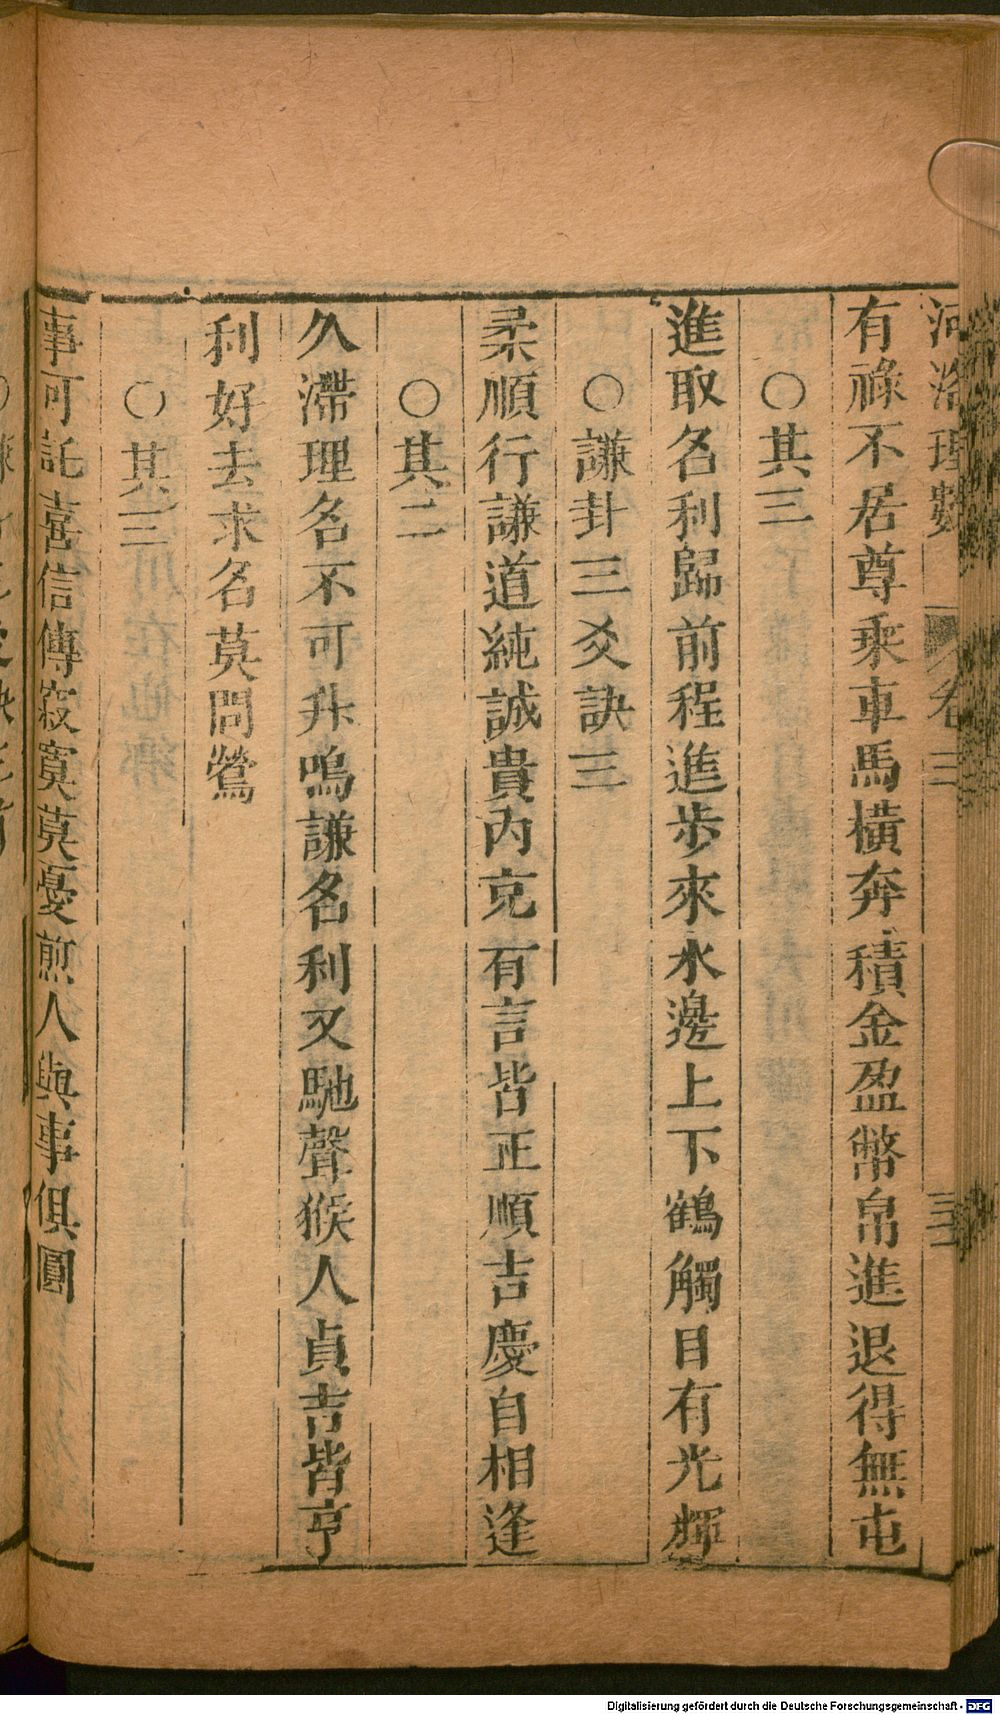 河洛理數 卷三 三二
有祿不居尊乘車馬橫奔積金盈幣帛進退得無屯
○其三
進取名利歸前程進步來水邊上下鶴觸目有光輝
○謙卦三爻訣三
柔順行謙道純誠貴內克有言皆正順吉慶自相逢
○其二
久滯理名不可升鳴謙名利又馳聲猴人貞吉皆亨
利好去求名莫問鶯
○其三
事可託喜信傳寂寞莫憂煎人與事俱圓
Digitalisierung gefördert durch die Deutsche Forschungsgemeinschaft - DFG